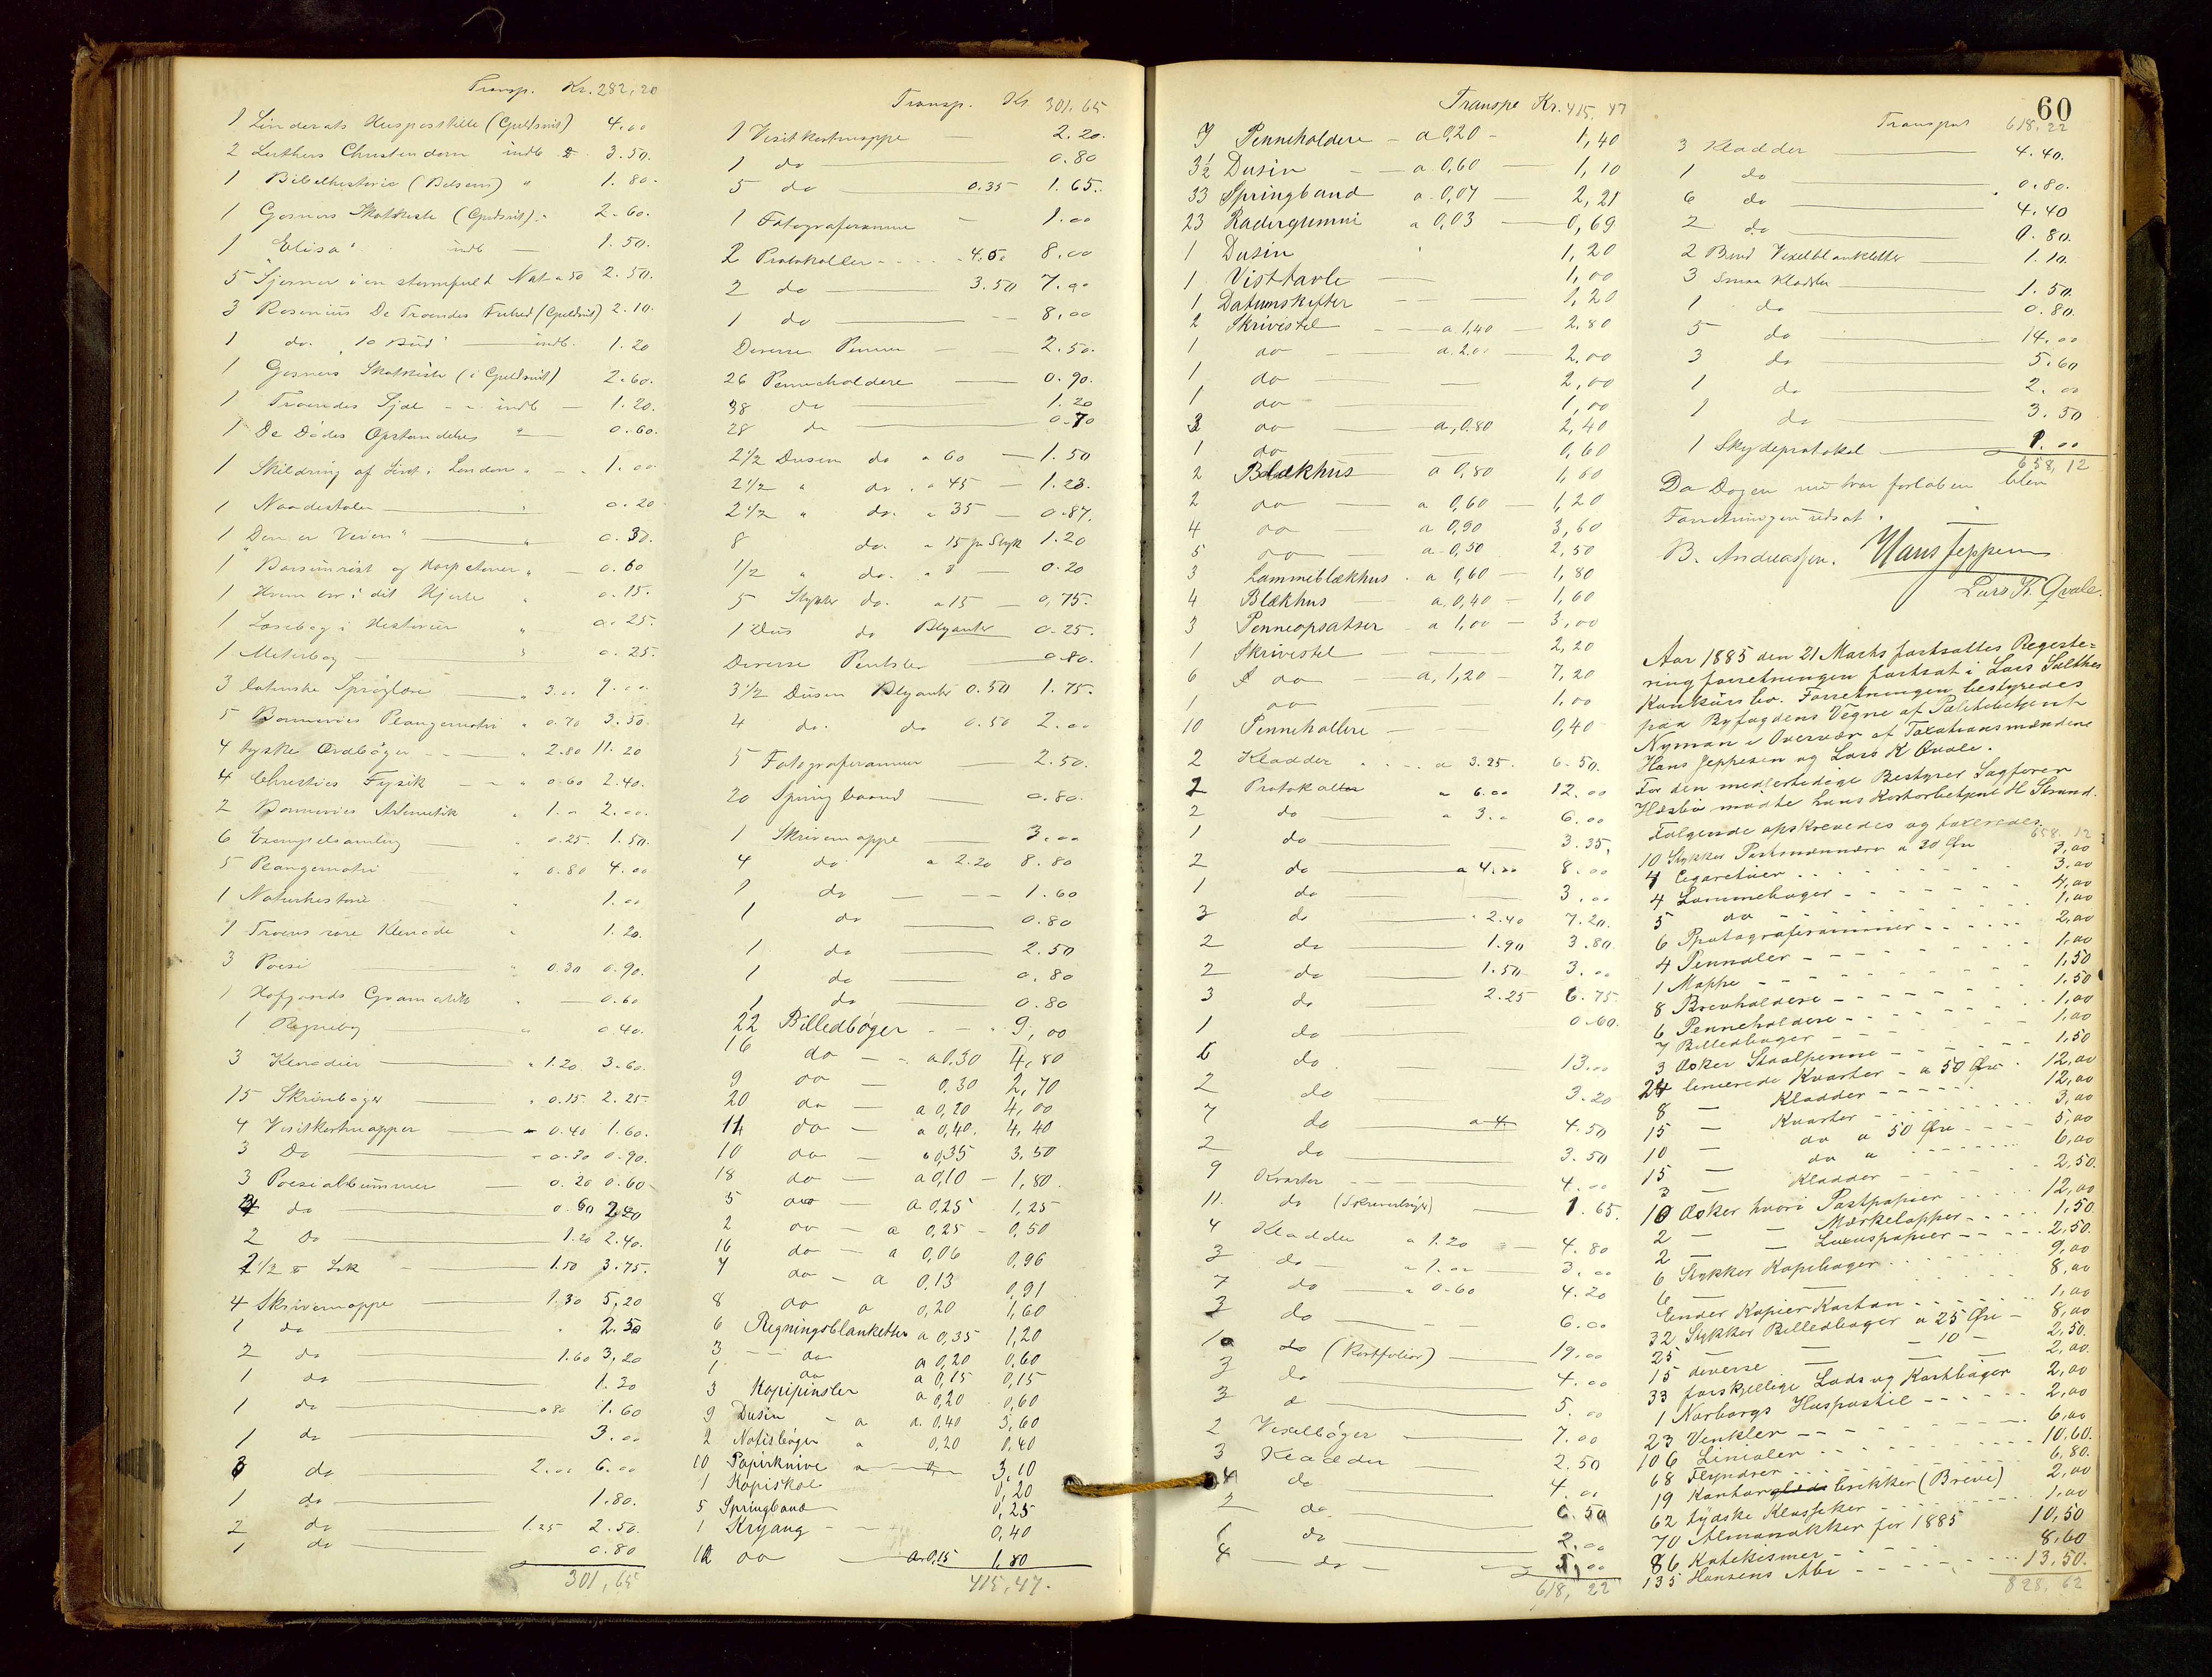 Transp. Kr. 282,20
1 Linderots Huspostille (Guldsnit) 4.00
2 Luthers Christendom indb 3.50.
1 Bibelhistorie 1.80.
1 Gosners Skatkiste (Guldsnit) 2.60.
1 "Elisa" indb — 1.50.
5 Stjerner i en stormfuld Nat a 50 2.50.
3 Rosenius De Troendes Frihed (Guldsnit) 2.10.
1 do. "10 Bud" — indb. 1.20
1 Gosners Skatkiste (i Guldsnit) 2.60.
1 Troendes Sjæl indb — 1.20.
1 De Dödes Opstandelse — 0.60.
1 Skildring af Livet i London — 1.00
1 Naadestolen — 0.20
1 Den er Veien" — 0.30.
1 og Harpetoner — 0.60
1 Hvem bor i dit Hjerte 0.15.
1 Læsebog i Historie " 0.25.
1 Meterbog — " 0.25.
3 latinske Sproglære " 3.00 9.00
5 Bonnevies Plangeometri " 0.70 3.50.
4 tyske Ordbøger " 2.80 11.20
4 Christies Fysik — " 0.60 2.40.
2 Bonnevies Aritmetik " 1.00 2.00.
6 Exempelsamling 0.25. 1.50.
5 Plangeometri 0.80 4.00
1 Naturhistorie 1.00
1 Troens rare Klenode 1.20.
3 Poesi — 0.30 0.90.
1 Hofgaards Gramatik — 0.60
1 Regnebog 0.40.
3 Klenodier — " 1.20 3.60.
15 Skrivebøger — " 0.15. 2.25.
4 Visitkortmapper — 0.40 1.60.
3 Do — 0.30 0.90.
3 Poesialbummer — 0.20 0.60
4 do — 0.60 2.40
2 Do — 1.20 2.40.
2 1/2 ℔ Lak — 1.50 3.75.
4 Skrivemappe — 1.30 5,20
1 do — 2.50
2 do — 1.60 3,20
1 do — 1.20
1 do — a 80 1.60
1 do — 3.00
3 do — 2.00 6.00
1 do — 1.80.
2 do — 1.25 2.50.
1 do — 0.80
301,65
Transp. Kr 301.65
1 Visitkortmappe — 2.20.
1 do 0.80
5 do — 0.35 1.65.
1 Fotograferamme — 1.00
2 Protokoller 4.00 8.00
2 do — 3.50 7.00
1 do — 8,00
Diverse Penner — 2.50.
26 Penneholdere — 0.90.
38 do — 1.20
28 do — 0.70
2 1/2 Dusin do a 60 — 1.50
2 1/2 " do. " 45 — 1.23.
2 1/2 " do. " 35 — 0.87.
8 do. " 15 pr Styk 1.20
1/2 " do. " — 0.20
5 Stykker do. a 15 — 0,75.
1 Dus do Blyanter 0.25.
Diverse Pentsler — 0.80.
3 1/2 Dusin Blyanter 0.50 1.75.
4 do. do 0.50 2.00
5 Fotograferammer — 2.50.
20 Springbaand — 0.80.
1 Skrivemappe — 3.00
4 do a 2.20 8.80
1 do — 1.60
1 do — 0.80
1 do — 2.50
1 do — 0.80
1 do — 0.80
22 Billedbøger — 9,00
16 do — a 0,30 4,80
9 do — 0,30 2,70
20 do — a 0,20 4,00
11 do — a 0,40. 4,40
10 do — a 0,35 3,50
18 do — a 0,10 — 1,80.
5 do — a 0,25 1,25
2 do — a 0,25 — 0,50
16 do — a 0,06 0,96
7 do — a 0,13 0,91
8 do a 0,20 1,60
6 Regningsblanketter a 0,35 1,20
3 — do a 0,20 0,60
1 do a 0,15 0,15
3 Kopipinsler a 0,20 0,60
9 Dusin — a 0,40 3,60
2 Notisbøger a 0,20 0,40
10 Papirknive a 3,10
1 Kopiskal 0,20
5 Springbaand 0,25
1 Kryang — 0,40
12 do — a 0,15 1,80
415,47.
Transpt Kr. 415,47
7 Penneholdere — a 0,20 — 1,40
3½ Dusin — a 0,60 — 1,10
33 Springbaand a 0,07 — 2,21
23 Radergummi a 0,03 — 0,69
1 Dusin 1,20
1 Visttavle — 1,00
1 Datumskifter — 1,20
2 Skrivestel — a 1,40 — 2,80
1 do — a 2.00 — 2.00
1 do — 2,00
1 do — 1,00
3 do — a 0.80 2,40
1 do — 0,60
2 Blækhus a 0,80 1,60
2 do — a 0,60 — 1,20
4 do — a 0,90 3,60
5 do — a 0,50 2,50
3 Lommeblækhus a 0,60 — 1,80
4 Blækhus — a 0,40 — 1,60
3 Penneopsatser — a 1,00 — 3,00
1 Skrivestel — 2,20
6 do — a, 1,20 — 7,20
1 do — 1,00
10 Penneholdere — 0,40
2 Kladder a 3.25. 6.50.
2 Protokoller " 6.00 12.00
2 do — " 3.00 6.00
1 do — 3.35.
2 do — a 4.00 8.00
1 do — 3.00
3 do — 2.40 7.20.
2 do — 1.90 3.80.
2 do — 1.50 3.00
3 do — 2.25 6.75
1 do — 0.60.
6 do — 13.00
2 do — 3.20
7 do — 4.50
2 do — 3.50
9 Kvarter — 4.00
11. do (Skrivebøger) — 1.65.
4 Kladder a 1.20 — 4.80
3 do — " 1.00 — 3.00
7 do — " 0.60 4.20
3 do — 6.00
10 do (Portfolier) — 19.00
3 do — 4.00
3 d — 5.00
2 Vexelbøger — 7.00
3 Kladder — 2.50
4 do — 4.00
2 do — 6.50
1 do — 2.00
4 — do — 5,00
618,22
60
Transport 618.22
3 Kladder — 4.40.
1 do — 0.80.
6 do — 4.40
2 do — 0.80.
2 Bind Vexelblanketter — 1.10.
3 Smaa Kladder — 1.50.
1 do — 0.80.
5 do — 14.00
3 do — 5.60
1 do — 2.00
1 do — 3.50
1 Skydeprotokol — 1.00
658,12
Da Dagen nu var forløben blev
Forretningen udsat.
B. Andreassen. Hans Jeppesen
Lars K. Qvale.
Aar 1885 den 21 Marts fortsattes Registe=
ringsforretningen fortsat i Lars Salthes
Konkursbo. Forretningen bestyredes
paa Byfogdens Vegne af Politibetjent
Nyman i Overvær af Taxationsmændene
Hans Jeppesen og Lars K Qvale.
For den midlertidige Bestyrer Sagfører
Hæsbø mødte hans Kontorbetjent H Strand.
Følgende opskrevedes og taxeredes. 658.12
10 Stykker a 30 Øre 3,00
4 Cigaretuier 3,00
4 Lommebøger 4,00
5 do 1,00
6 Fotograferammer 2,00
4 Pennaler 1,00
1 Mappe 1,50
8 Brevholdere 1,50
6 Penneholdere 1,00
7 Billedbøger — 1,00
3 Æsker Staalpenne 1,50
24 linierede Kvarter — a 50 Øre 12,00
8 — Kladder 12,00
15 — Kvarter 3,00
10 — do a 50 Øre 5,00
15 — do a 6,00
3 — Kladder 2,50.
10 Æsker hvori Postpapier 12,00
2 — Mærkelapper 1,50
2 — Luxuspapier 2,50.
6 Stykker Kopibøger 9,00
6 — — 8,00
Ender Kopier Karton 1,00
32 Stykker Billedbøger a 25 Øre — 8,00
25 — — 10 — 2,50.
15 diverse — — 2,00.
33 forskjellige Lods og Kartbøger 2,00
1 Norborgs Huspostil 2,00
23 Venkler 6,00
106 Linialer 10,60.
68 Flyndrer 6,80.
19 Kontor brikker (Breve) 2,00
62 tydske Klassiker 1,00
70 Almanakker for 1885 10,50
86 Katekismer 8,60
135 Hansens Abc 13,50.
828,62